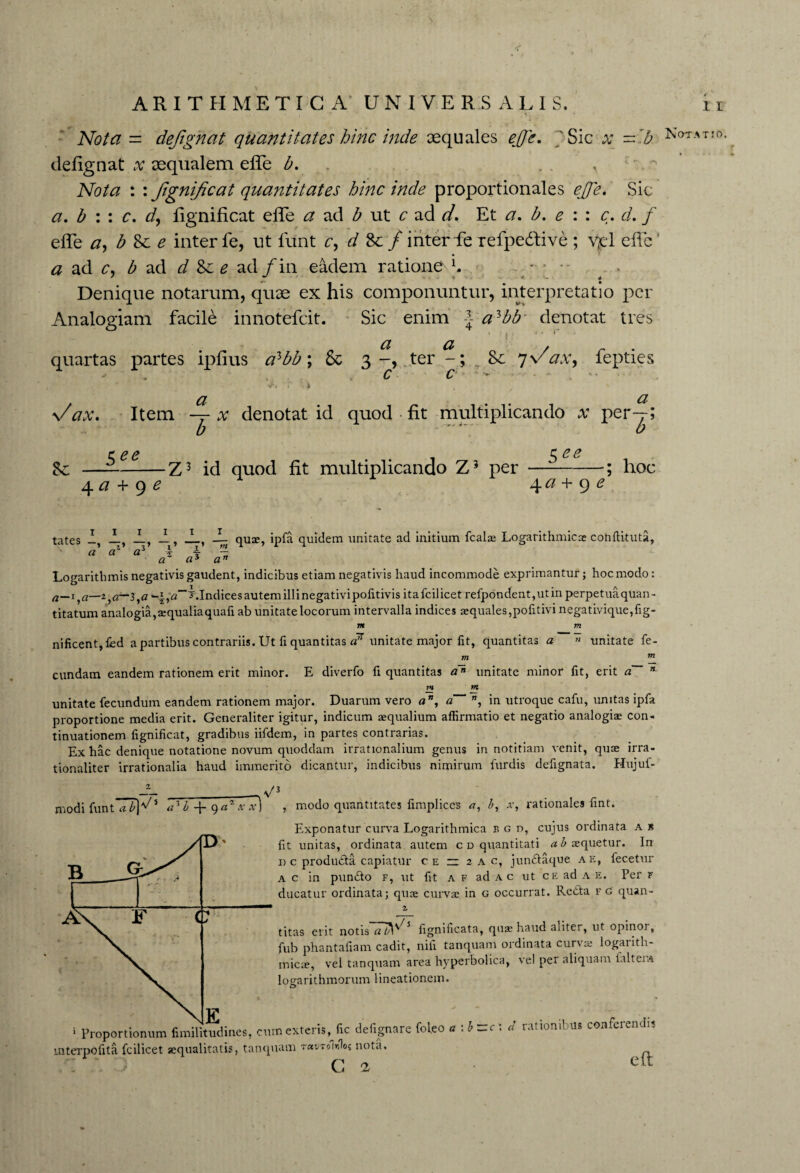 ARITHMETICA UNIVERSALIS. 11
Nota = deſignat quantitates hinc inde æquales eſſe. Sic x = b
Notatio.
deſignat x æqualem eſſe b.
Nota : : ſignificat quantitates hinc inde proportionales eſſe. Sic
a. b : : c. d, ſignificat eſſe a ad b ut c ad d. Et a. b. e : : c. d. f
eſſe a, b & e inter ſe, ut ſunt c, d & f inter ſe reſpective ; vel eſſe
a ad c, b ad d & e ad f in eâdem ratione ¹.
Denique notarum, quæ ex his componuntur, interpretatio per
Analogiam facilè innoteſcit. Sic enim ¾ a³bb denotat tres
quartas partes ipſius a³bb ; & 3 a/c, ter a/c ; & 7√ax, ſepties
√ax. Item a/b x denotat id quod fit multiplicando x per a/b ;
& 5ee/(4a + 9e) Z³ id quod fit multiplicando Z³ per 5ee/(4a + 9e) ; hoc
tates 1/a, 1/a², 1/a³, 1/a^½, 1/a^⅓, 1/a^(m/n) quæ, ipſa quidem unitate ad initium ſcalæ Logarithmicæ conſtitutâ,
Logarithmis negativis gaudent, indicibus etiam negativis haud incommodè exprimantur ; hoc modo :
a—1, a—2, a—3, a—½, a—⅓. Indices autem illi negativi poſitivis ita ſcilicet reſpondent, ut in perpetua quan-
titatum analogiâ, æqualia quaſi ab unitate locorum intervalla indices æquales, poſitivi negativique, ſig-
nificent, ſed a partibus contrariis. Ut ſi quantitas a^(m/n) unitate major fit, quantitas a^(—m/n) unitate ſe-
cundam eandem rationem erit minor. E diverſo ſi quantitas a^(m/n) unitate minor fit, erit a^(—m/n)
unitate ſecundum eandem rationem major. Duarum vero a^(m/n), a^(—m/n), in utroque caſu, unitas ipſa
proportione media erit. Generaliter igitur, indicum æqualium affirmatio et negatio analogiæ con-
tinuationem ſignificat, gradibus iiſdem, in partes contrarias.
Ex hâc denique notatione novum quoddam irrationalium genus in notitiam venit, quæ irra-
tionaliter irrationalia haud immeritò dicantur, indicibus nimirum ſurdis deſignata. Hujuſ-
modi ſunt ab|^(2/√5) a³b + 9a²xx|^√3, modo quantitates ſimplices a, b, x, rationales ſint.
Exponatur curva Logarithmica B G D, cujus ordinata A B
fit unitas, ordinata autem C D quantitati ab æquetur. In
D C productâ capiatur C E = 2 A C, junctâque A E, ſecetur
A C in puncto F, ut fit A F ad A C ut C E ad A E. Per F
ducatur ordinata ; quæ curvæ in G occurrat. Recta F G quan-
titas erit notis ab|^(2/√5) ſignificata, quæ haud aliter, ut opinor,
ſub phantaſiam cadit, niſi tanquam ordinata curvæ logarith-
micæ, vel tanquam area hyperbolica, vel per aliquam ſaltem
logarithmorum lineationem.
B G D
A F C
E
¹ Proportionum ſimilitudines, cum exteris, ſic deſignare ſoleo a : b = c : d rationibus conferendis
interpoſitâ ſcilicet æqualitatis, tanquam ταυτότητος notâ.
C 2
eſt